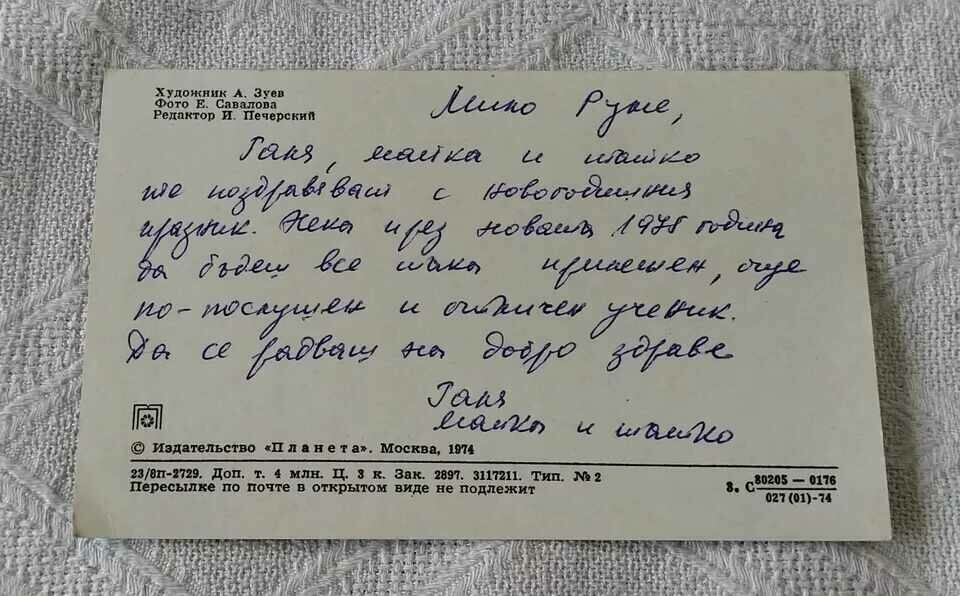 Художник А. Зуев
Фото Е. Савалова
Редактор И. Печерский
Мило Руме,
Ганя, майка и татко
те поздравяват с новогодишния
празник. Нека през новата 1975 година
да бъдеш все така прилежен, още
по-послушен и отличен ученик.
Да се радваш на добро здраве
Ганя
майка и татко
© Издательство «Планета». Москва, 1974
23/8п-2729. Доп. т. 4 млн. Ц. 3 к. Зак. 2897. 3117211. Тип. № 2
Пересылке по почте в открытом виде не подлежит
З. С 80205 — 0176
027 (01)-74